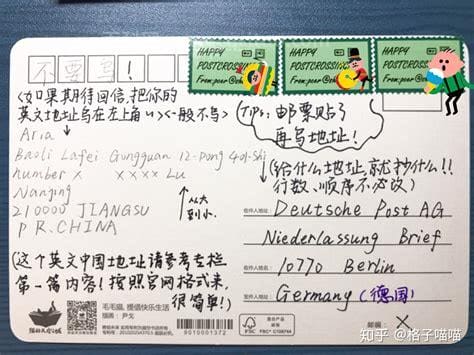 不要写!
HAPPY
POSTCROSSING
From:poer@
HAPPY
POSTCROSSING
From:poer@
HAPPY
POSTCROSSING
From:poer@
(如果期待回信,把你的
英文地址写在左上角 一般不写)
Aria
Baoli Lafei Gongguan 12-Dong 401-Shi
number X XXXX Lu
Nanjing
210000 JIANGSU
P.R.CHINA
从大
到小.
(这个英文中国地址请参考专栏
第一篇内容!按照官网格式来,
很简单!)
Tips:邮票贴了
再写地址!
(给什么地址,就抄什么!!
行数、顺序不必改)
收件人地址:
Deutsche Post AG
Niederlassung Brief
10770 Berlin
Germany (德国)
收件人姓名:
X
毛毛猫,提信快乐生活
插画:尹戈
9010001372
FSC
知乎 @格子喵喵